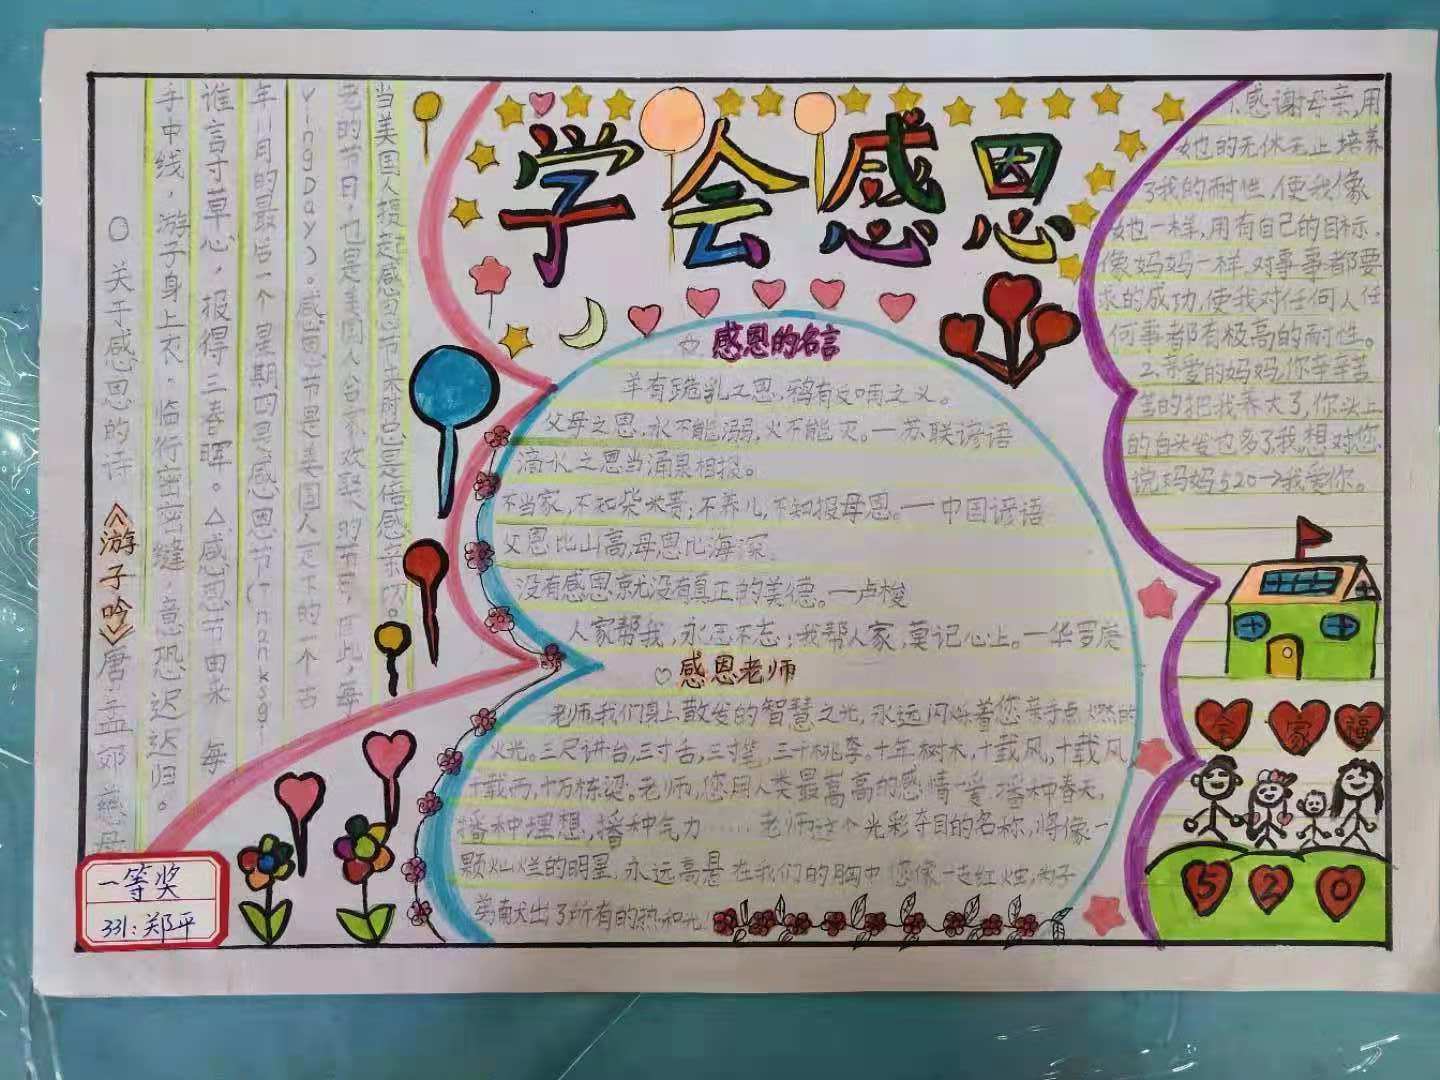 学会感恩
○关于感恩的诗《游子吟》唐孟郊慈母
手中线，游子身上衣。临行密密缝，意恐迟迟归。
谁言寸草心，报得三春晖。△感恩节由来 每
年11月的最后一个星期四是感恩节(Thanksgi
vingDay)。感恩节是美国人定下的一个古
老的节日，也是美国人合家欢聚的节节，因此每
当美国人提起感恩节来时总是倍感亲切。
感恩的名言
羊有跪乳之恩，鸦有反哺之义。
父母之恩，水不能溺，火不能灭。一苏联谚语
滴水之恩当涌泉相报。
不当家，不知柴米贵；不养儿，不知报母恩。一中国谚语
父恩比山高，母恩比海深。
没有感恩就没有真正的美德。一卢梭
人家帮我，永远不忘；我帮人家，莫记心上。一华罗庚
♡感恩老师
老师，我们身上散发的智慧之光，永远闪烁着您亲手点燃的
火光。三尺讲台，三寸舌，三寸笔，三千桃李。十年树木，十载风，十载风，
十载雨，十万栋梁。老师，您用人类最崇高的感情一爱，播种春天，
播种理想，播种气力……老师这个光彩夺目的名称，将像一
颗灿烂的明星，永远高悬在我们的胸中您像一支红烛，为子
献出了所有的热和光！
1.感谢母亲，用
她的无休无止培养
了我的耐性，使我像
她一样，用有自己的目标，
像妈妈一样，对事事都要
求的成功，使我对任何人任
何事都有极高的耐性。
2.亲爱的妈妈，你辛辛苦
苦的把我养大了，你头上
的白头发也多了，我想对您
说妈妈520→我爱你。
全家福
520
一等奖
331：郑平